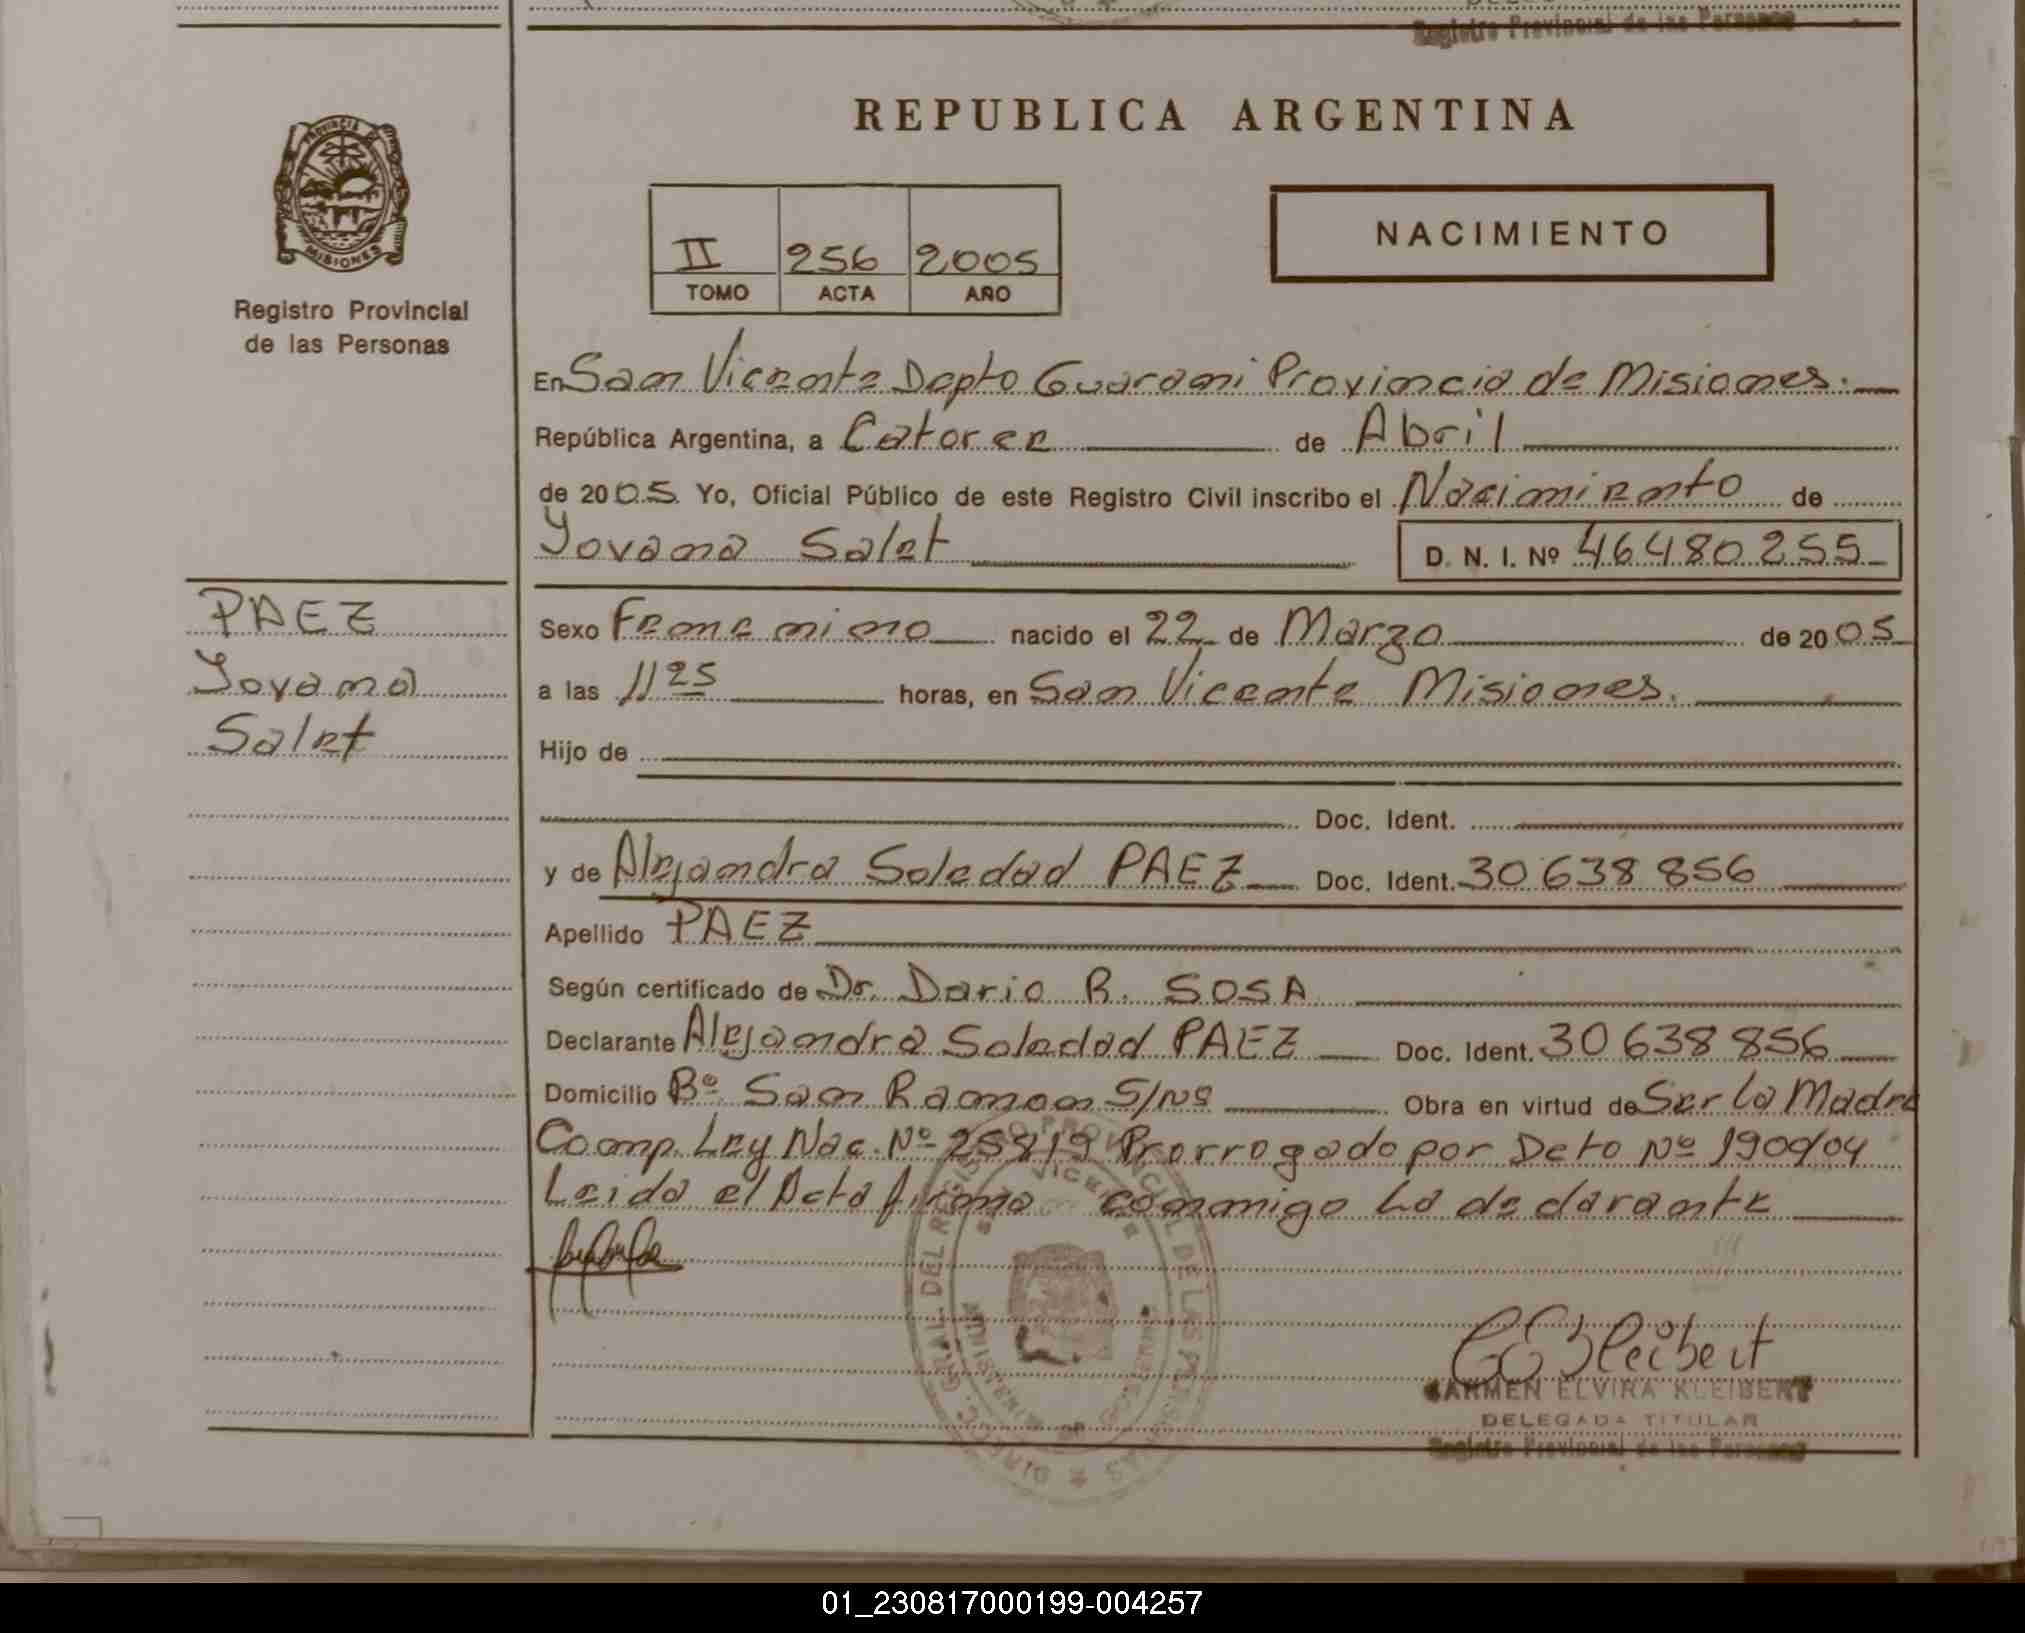 Registro Provincial de las Personas
REPUBLICA ARGENTINA
PROVINCIA DE
MISIONES
Registro Provincial
de las Personas
II 256 2005
TOMO ACTA AÑO
NACIMIENTO
En San Vicente Depto Guarani Provincia de Misiones.
República Argentina, a Catorce de Abril
de 2005. Yo, Oficial Público de este Registro Civil inscribo el Nacimiento de
Yovana Salet D. N. I. Nº 46480255
PAEZ
Yovana
Salet
Sexo Femenino nacido el 22 de Marzo de 2005
a las 11 25 horas, en San Vicente Misiones.
Hijo de
Doc. Ident.
y de Alejandra Soledad PAEZ Doc. Ident. 30 638 856
Apellido PAEZ
Según certificado de Dr. Dario R. SOSA
Declarante Alejandra Soledad PAEZ Doc. Ident. 30 638 856
Domicilio Bº San Ramon S/Nº Obra en virtud de Ser la Madre
Comp. Ley Nac. Nº 25819 Prorrogado por Dcto Nº 1900/04
Leida el Acta firma conmigo La declarante
CEKleibert
CARMEN ELVIRA KLEIBERT
DELEGADA TITULAR
Registro Provincial de las Personas
01_230817000199-004257